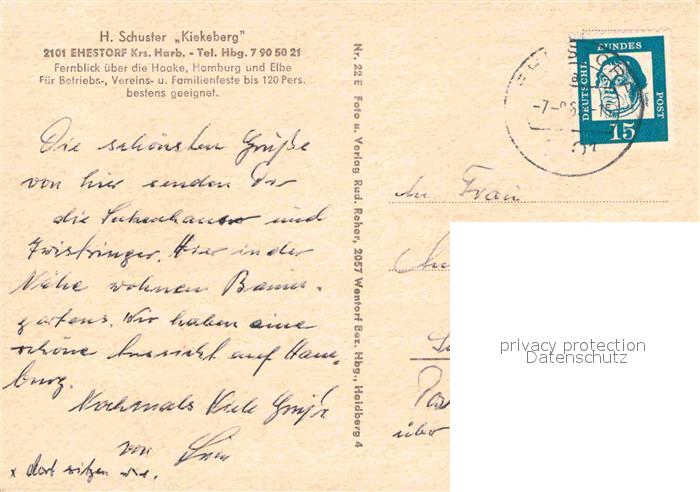 H. Schuster „Kiekeberg"
2101 EHESTORF Krs. Harb. - Tel. Hbg. 7 90 50 21
Fernblick über die Haake, Hamburg und Elbe
Für Betriebs-, Vereins- u. Familienfeste bis 120 Pers.
bestens geeignet.
Die schönsten Grüße
von hier senden Dir
die und
Zwistringer. Hier in der
Nähe wohnen Baum-
gartens. Wir haben eine
schöne Aussicht auf Ham-
burg.
Nochmals Viele Grüße
von
x dort sitzen wir.
Nr. 22 E Foto u. Verlag Rud. Reher, 2057 Wentorf Bez. Hbg., Heidberg 4
DEUTSCHE BUNDES POST
15
An Frau
über
privacy protection
Datenschutz